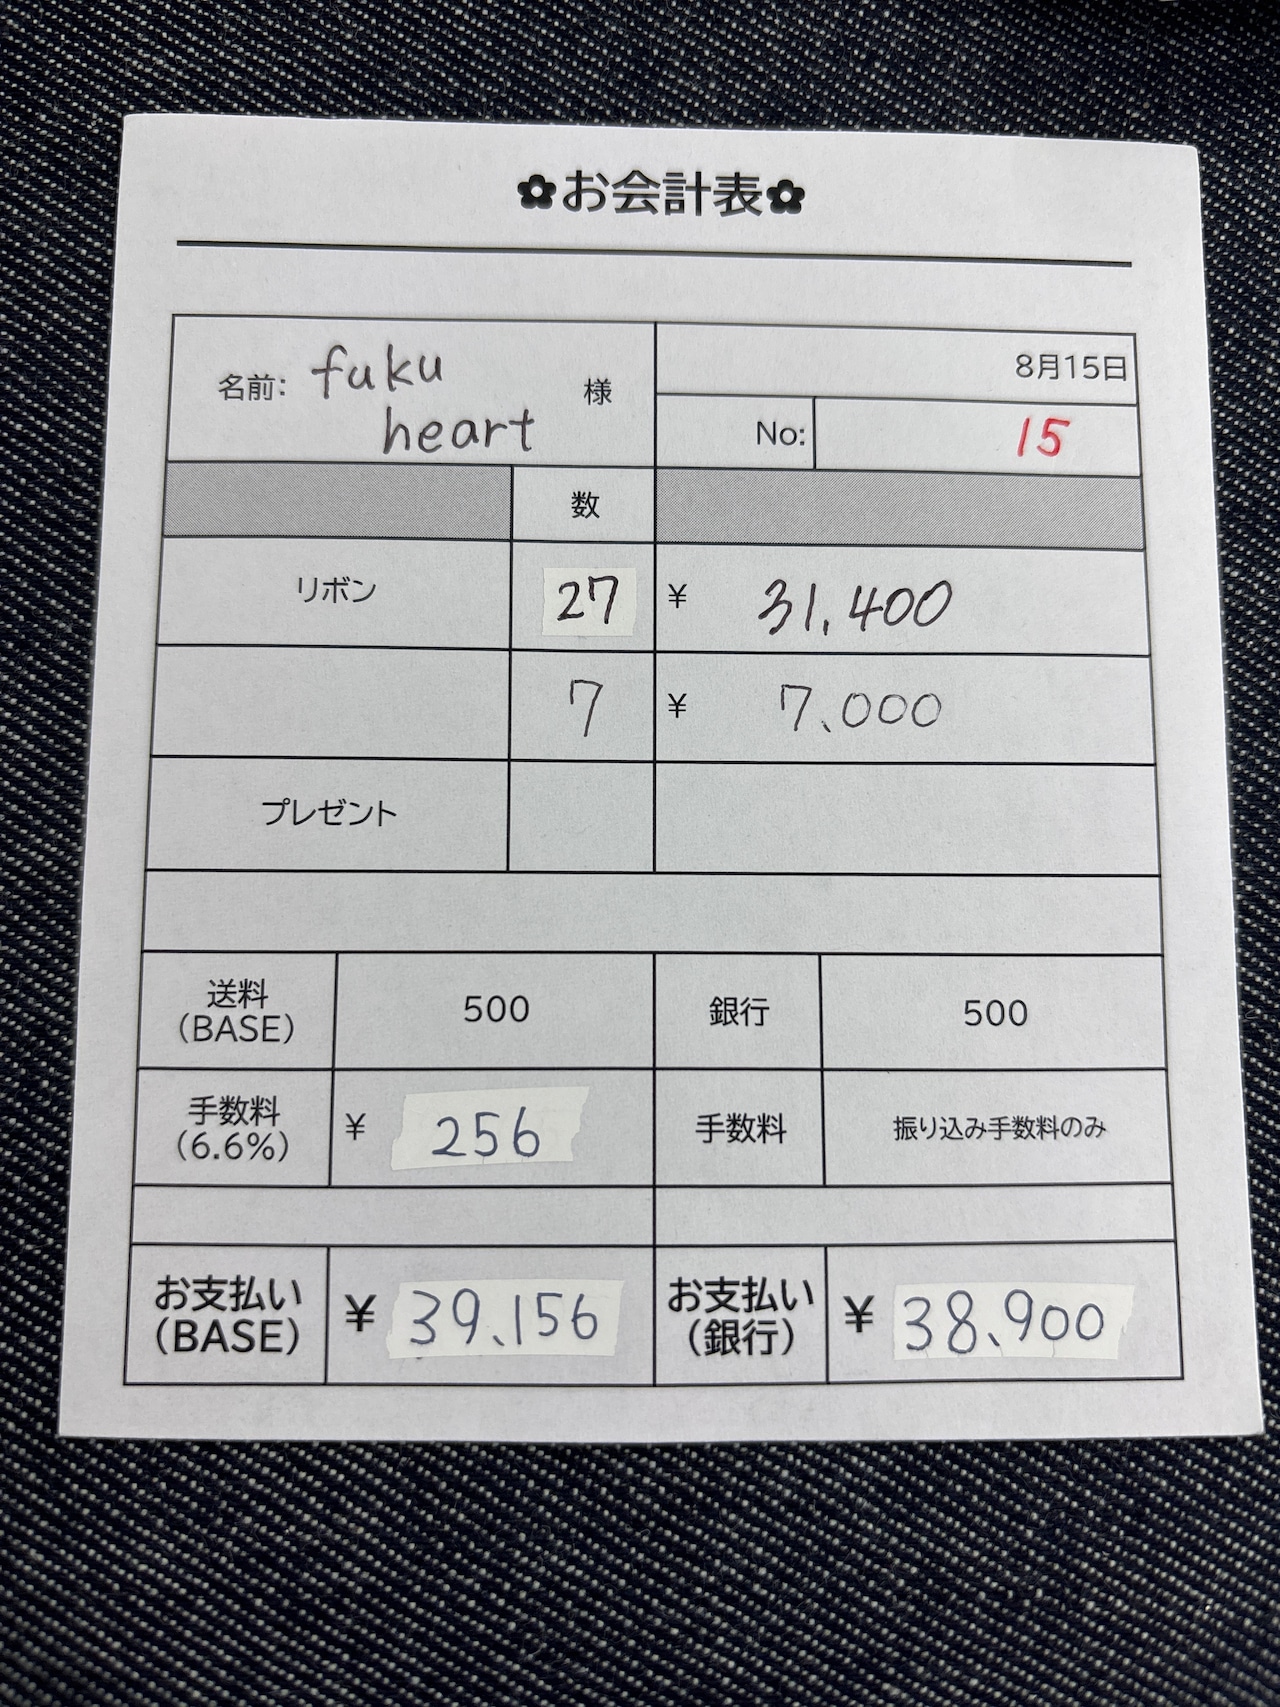 ✿お会計表✿
名前: fuku heart 様
8月15日
No: 15
数
リボン 27 ¥ 31,400
7 ¥ 7,000
プレゼント
送料 (BASE) 500 銀行 500
手数料 (6.6%) ¥ 256 手数料 振り込み手数料のみ
お支払い (BASE) ¥ 39,156 お支払い (銀行) ¥ 38,900